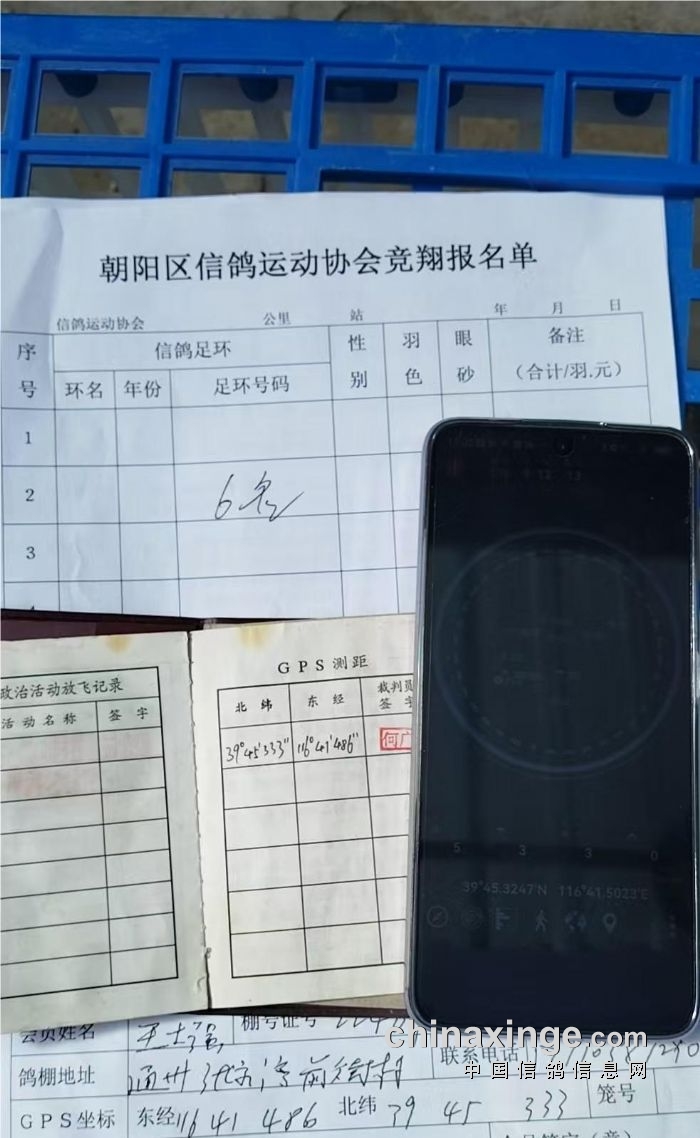 朝阳区信鸽运动协会竞翔报名单
信鸽运动协会 公里 站 年 月 日
序号 信鸽足环 性别 羽色 眼砂 备注（合计/羽.元）
环名 年份 足环号码
1
2 6名
3
政治活动放飞记录
活动名称 签字
GPS测距
北纬 东经 裁判员签字
39°45'333" 116°41'486" 何广
5 3 3 0
39°45.3247'N 116°41.5023'E
会员姓名 王士强 棚号证号
鸽棚地址 通州 前街村 联系电话
GPS坐标 东经 116 41 486 北纬 39 45 333 笼号
chinaxinge.com
中国信鸽信息网